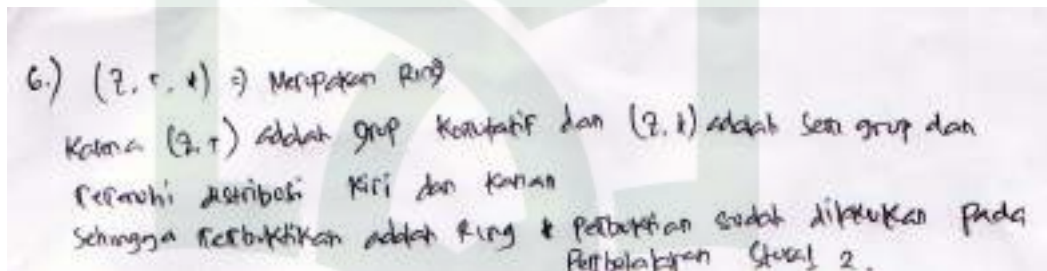 6.) (Z, +, *) => Merupakan Ring
Karena (Z, +) adalah grup Komutatif dan (Z, *) adalah Semi grup dan
Pemenuhi distribusi Kiri dan Kanan
Sehingga Terbuktikan adalah Ring * Pembuktian sudah dilakukan pada
Pembelajaran Soal 2.